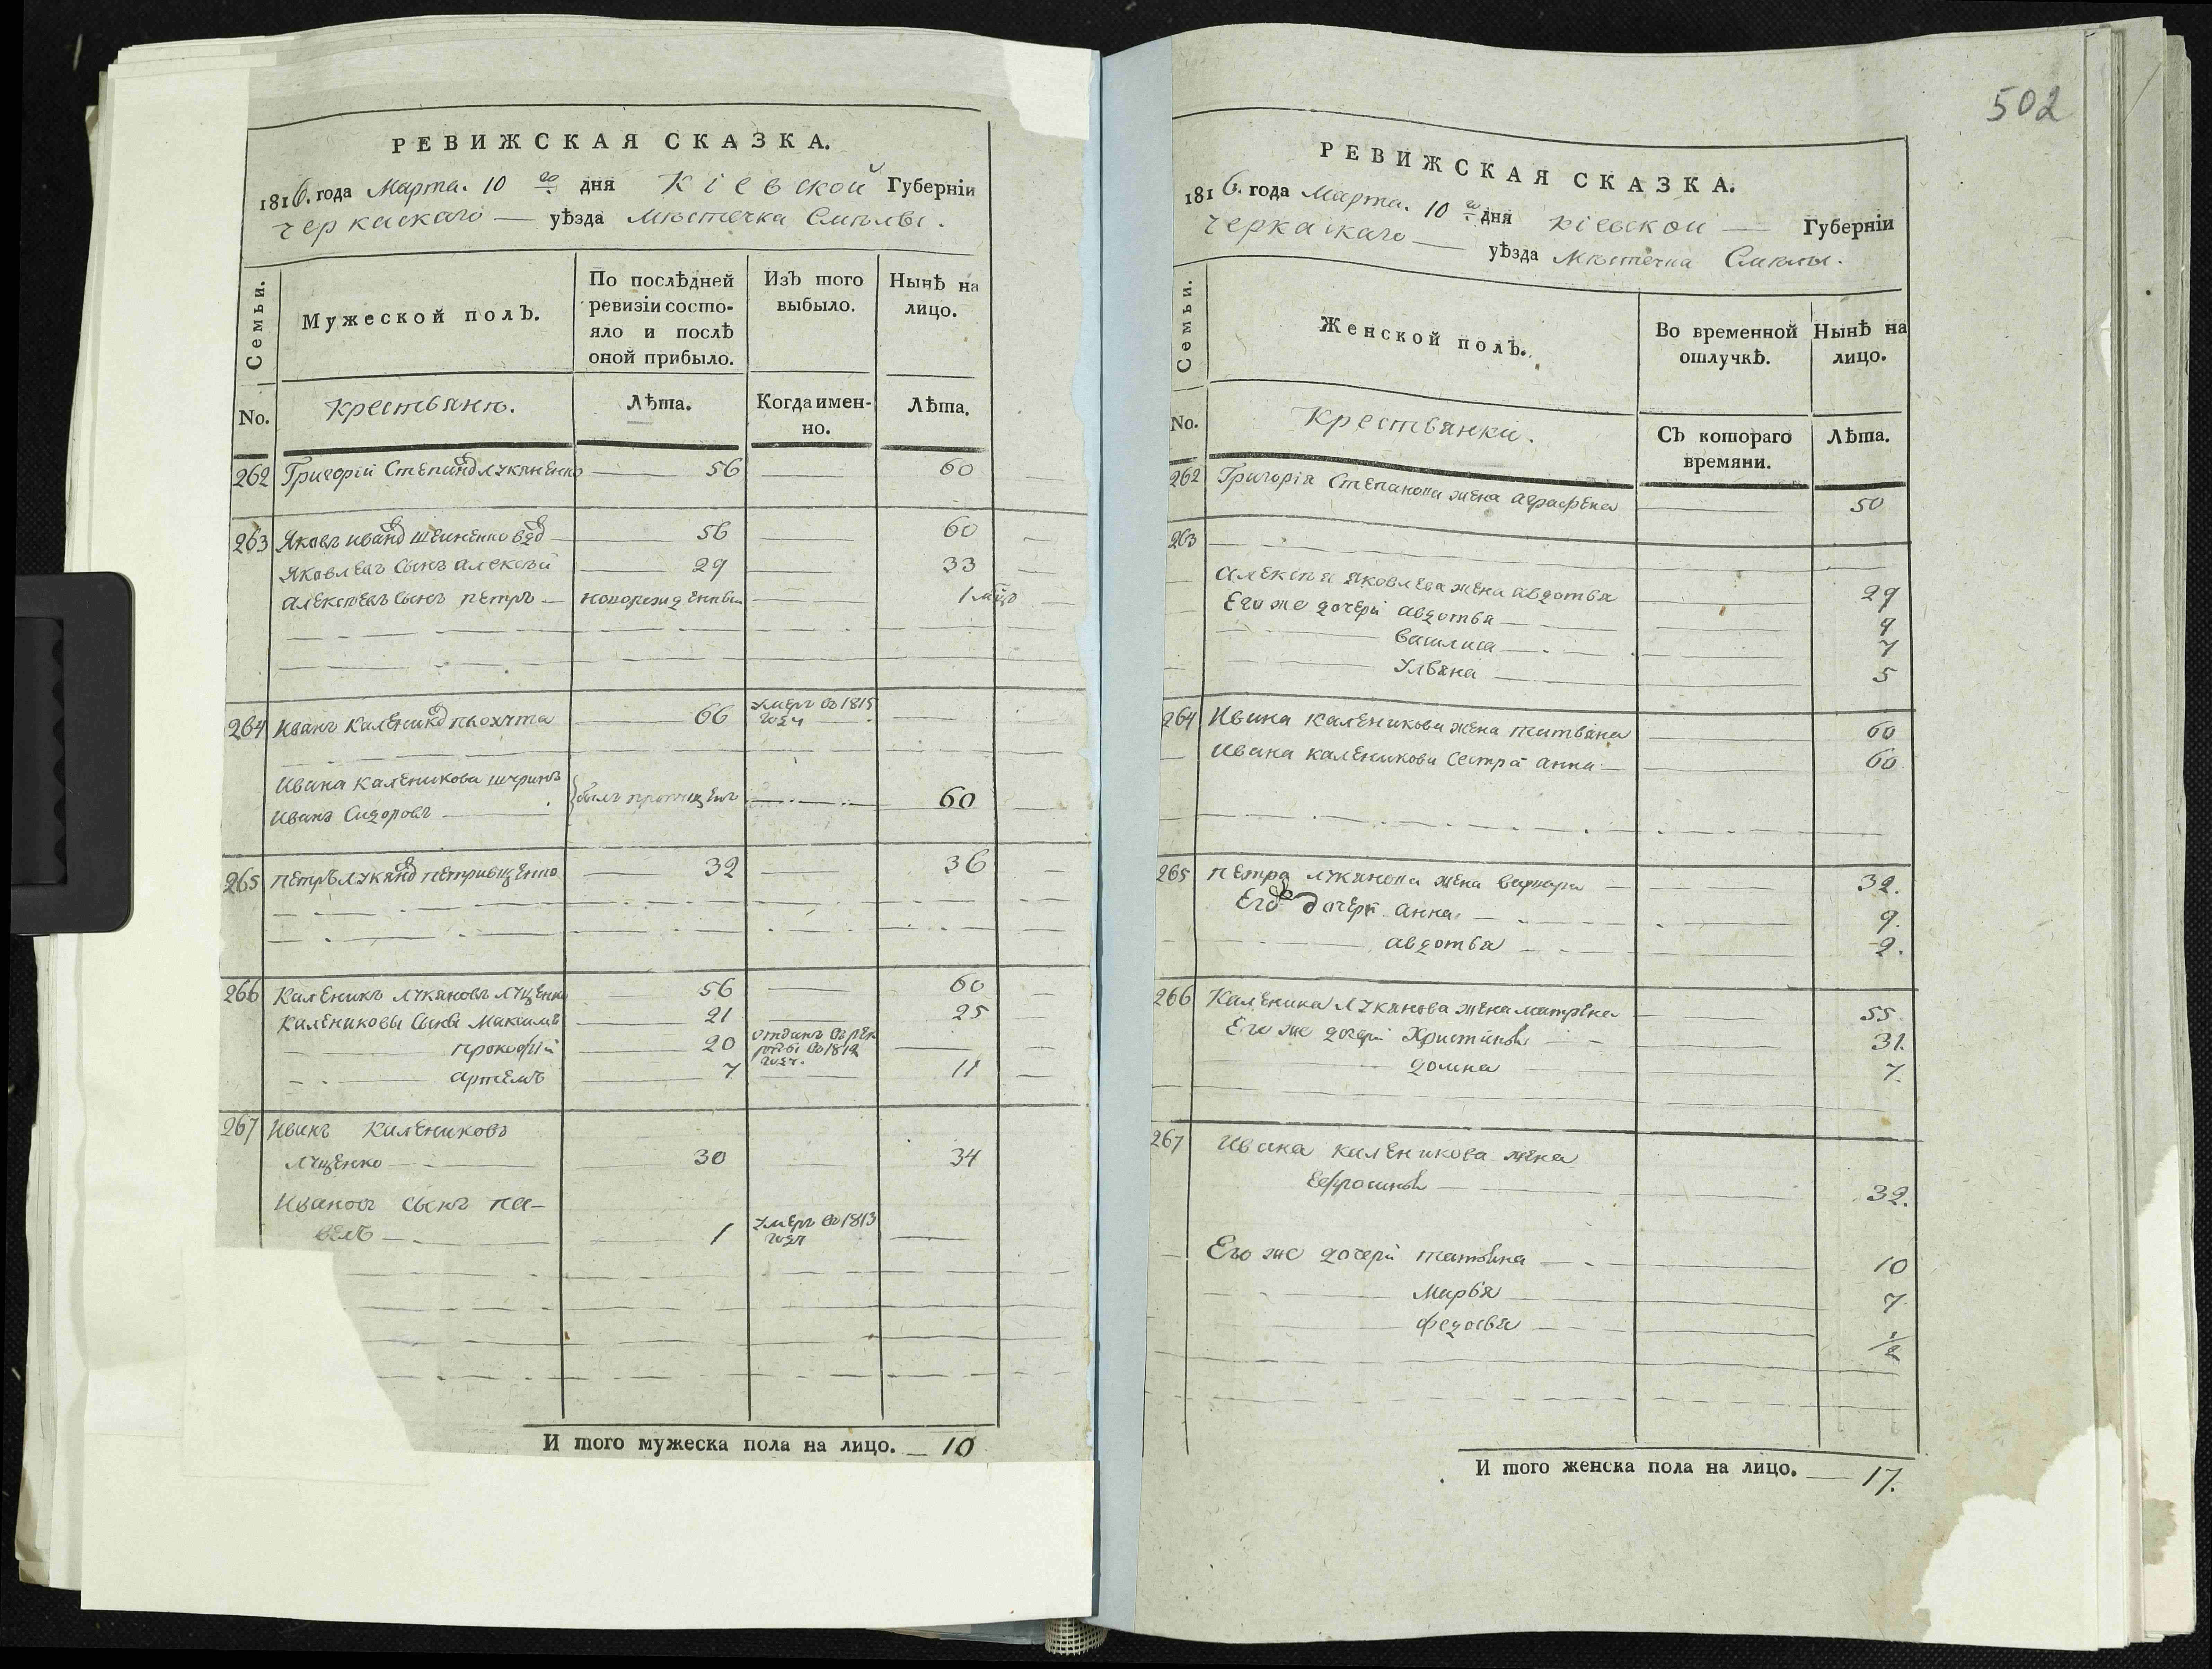 502
РЕВИЖСКАЯ СКАЗКА.
1816. года Марта. 10 го дня Кіевской Губерніи
Черкаскаго — уѣзда Мѣстечка Смѣлы.
Семьи.
Мужеской полъ.
По послѣдней ревизіи состо-
яло и послѣ
оной прибыло.
Изъ того
выбыло.
Нынѣ на
лицо.
No.
Крестьянъ.
Лѣта.
Когда имен-
но.
Лѣта.
262 Григорій Степановъ Лукяненко — 56 — 60
263 Яковъ Ивановъ — 56 — 60
Яковлевъ сынъ Алексѣй — 29 — 33
Алексѣевъ сынъ Петръ — новорожденный 1 мѣць
264 Иванъ Калениковъ — 66 умеръ въ 1815
году
Ивана Каленикова шуринъ
Иванъ Сидоровъ — былъ пропущенъ — 60
265 Петръ Лукяновъ Петриващенко — 32 — 36
266 Каленикъ Лукяновъ Луценко — 56 — 60
Калениковы сыны Максимъ — 21 — 25
Прокофій — 20 отданъ въ рек
руты въ 1812
году.
Артемъ — 7 — 11
267 Иванъ Калениковъ
Луценко — 30 34
Ивановъ сынъ Па-
велъ — 1 умеръ въ 1813
году
И того мужеска пола на лицо. — 10
РЕВИЖСКАЯ СКАЗКА.
1816. года Марта. 10 го дня Кіевской — Губерніи
Черкаскаго — уѣзда Мѣстечка Смѣлы.
Семьи.
Женской полъ.
Во временной
отлучкѣ.
Нынѣ на
лицо.
No.
Крестьянки.
Съ котораго
времяни.
Лѣта.
262 Григорія Степанова жена Аграфена — 50
263
Алексѣя Яковлева жена Авдотья — 29
Его же дочери Авдотья — 9
Василиса — 7
Ульяна — 5
264 Ивана Каленикова жена Татьяна — 60
Ивана Каленикова сестра Анна — 60
265 Петра Лукянова жена Варвара — 32.
Его же дочери Анна — 9.
Авдотья — 2.
266 Каленика Лукянова жена Матрена — 55.
Его же дочери Христинья — 31.
Домна — 7.
267 Ивана Каленикова жена
Ефросинья — 32.
Его же дочери Татьяна — 10
Марья — 7.
Федосья — 1/2
И того женска пола на лицо. — 17.